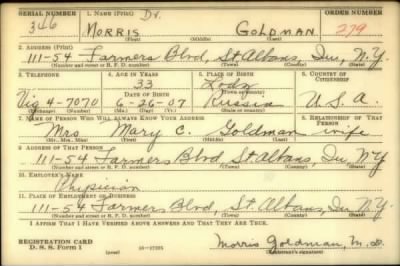 SERIAL NUMBER 1. NAME (Print) Dr. ORDER NUMBER
366 MORRIS GOLDMAN 279
(First) (Middle) (Last)
2. ADDRESS (Print)
111-54 Farmers Blvd, St. Albans, Qu, N.Y.
(Number and street or R. F. D. number) (Town) (County) (State)
3. TELEPHONE 4. AGE IN YEARS 5. PLACE OF BIRTH 6. COUNTRY OF CITIZENSHIP
33 Lodz
DATE OF BIRTH (Town or county)
Vig 4-7070 6-26-07 Russia U.S.A.
(Exchange) (Number) (Mo.) (Day) (Yr.) (State or country)
7. NAME OF PERSON WHO WILL ALWAYS KNOW YOUR ADDRESS 8. RELATIONSHIP OF THAT PERSON
Mrs Mary C. Goldman wife
(Mr., Mrs., Miss) (First) (Middle) (Last)
9. ADDRESS OF THAT PERSON
111-54 Farmers Blvd, St. Albans, Qu N.Y.
(Number and street or R. F. D. number) (Town) (County) (State)
10. EMPLOYER'S NAME
Physician
11. PLACE OF EMPLOYMENT OR BUSINESS
111-54 Farmers Blvd, St. Albans, Qu N.Y.
(Number and street or R. F. D. number) (Town) (County) (State)
I AFFIRM THAT I HAVE VERIFIED ABOVE ANSWERS AND THAT THEY ARE TRUE.
REGISTRATION CARD
D. S. S. Form 1 (over) 16-17105 Morris Goldman, M.D.
(Registrant's signature)